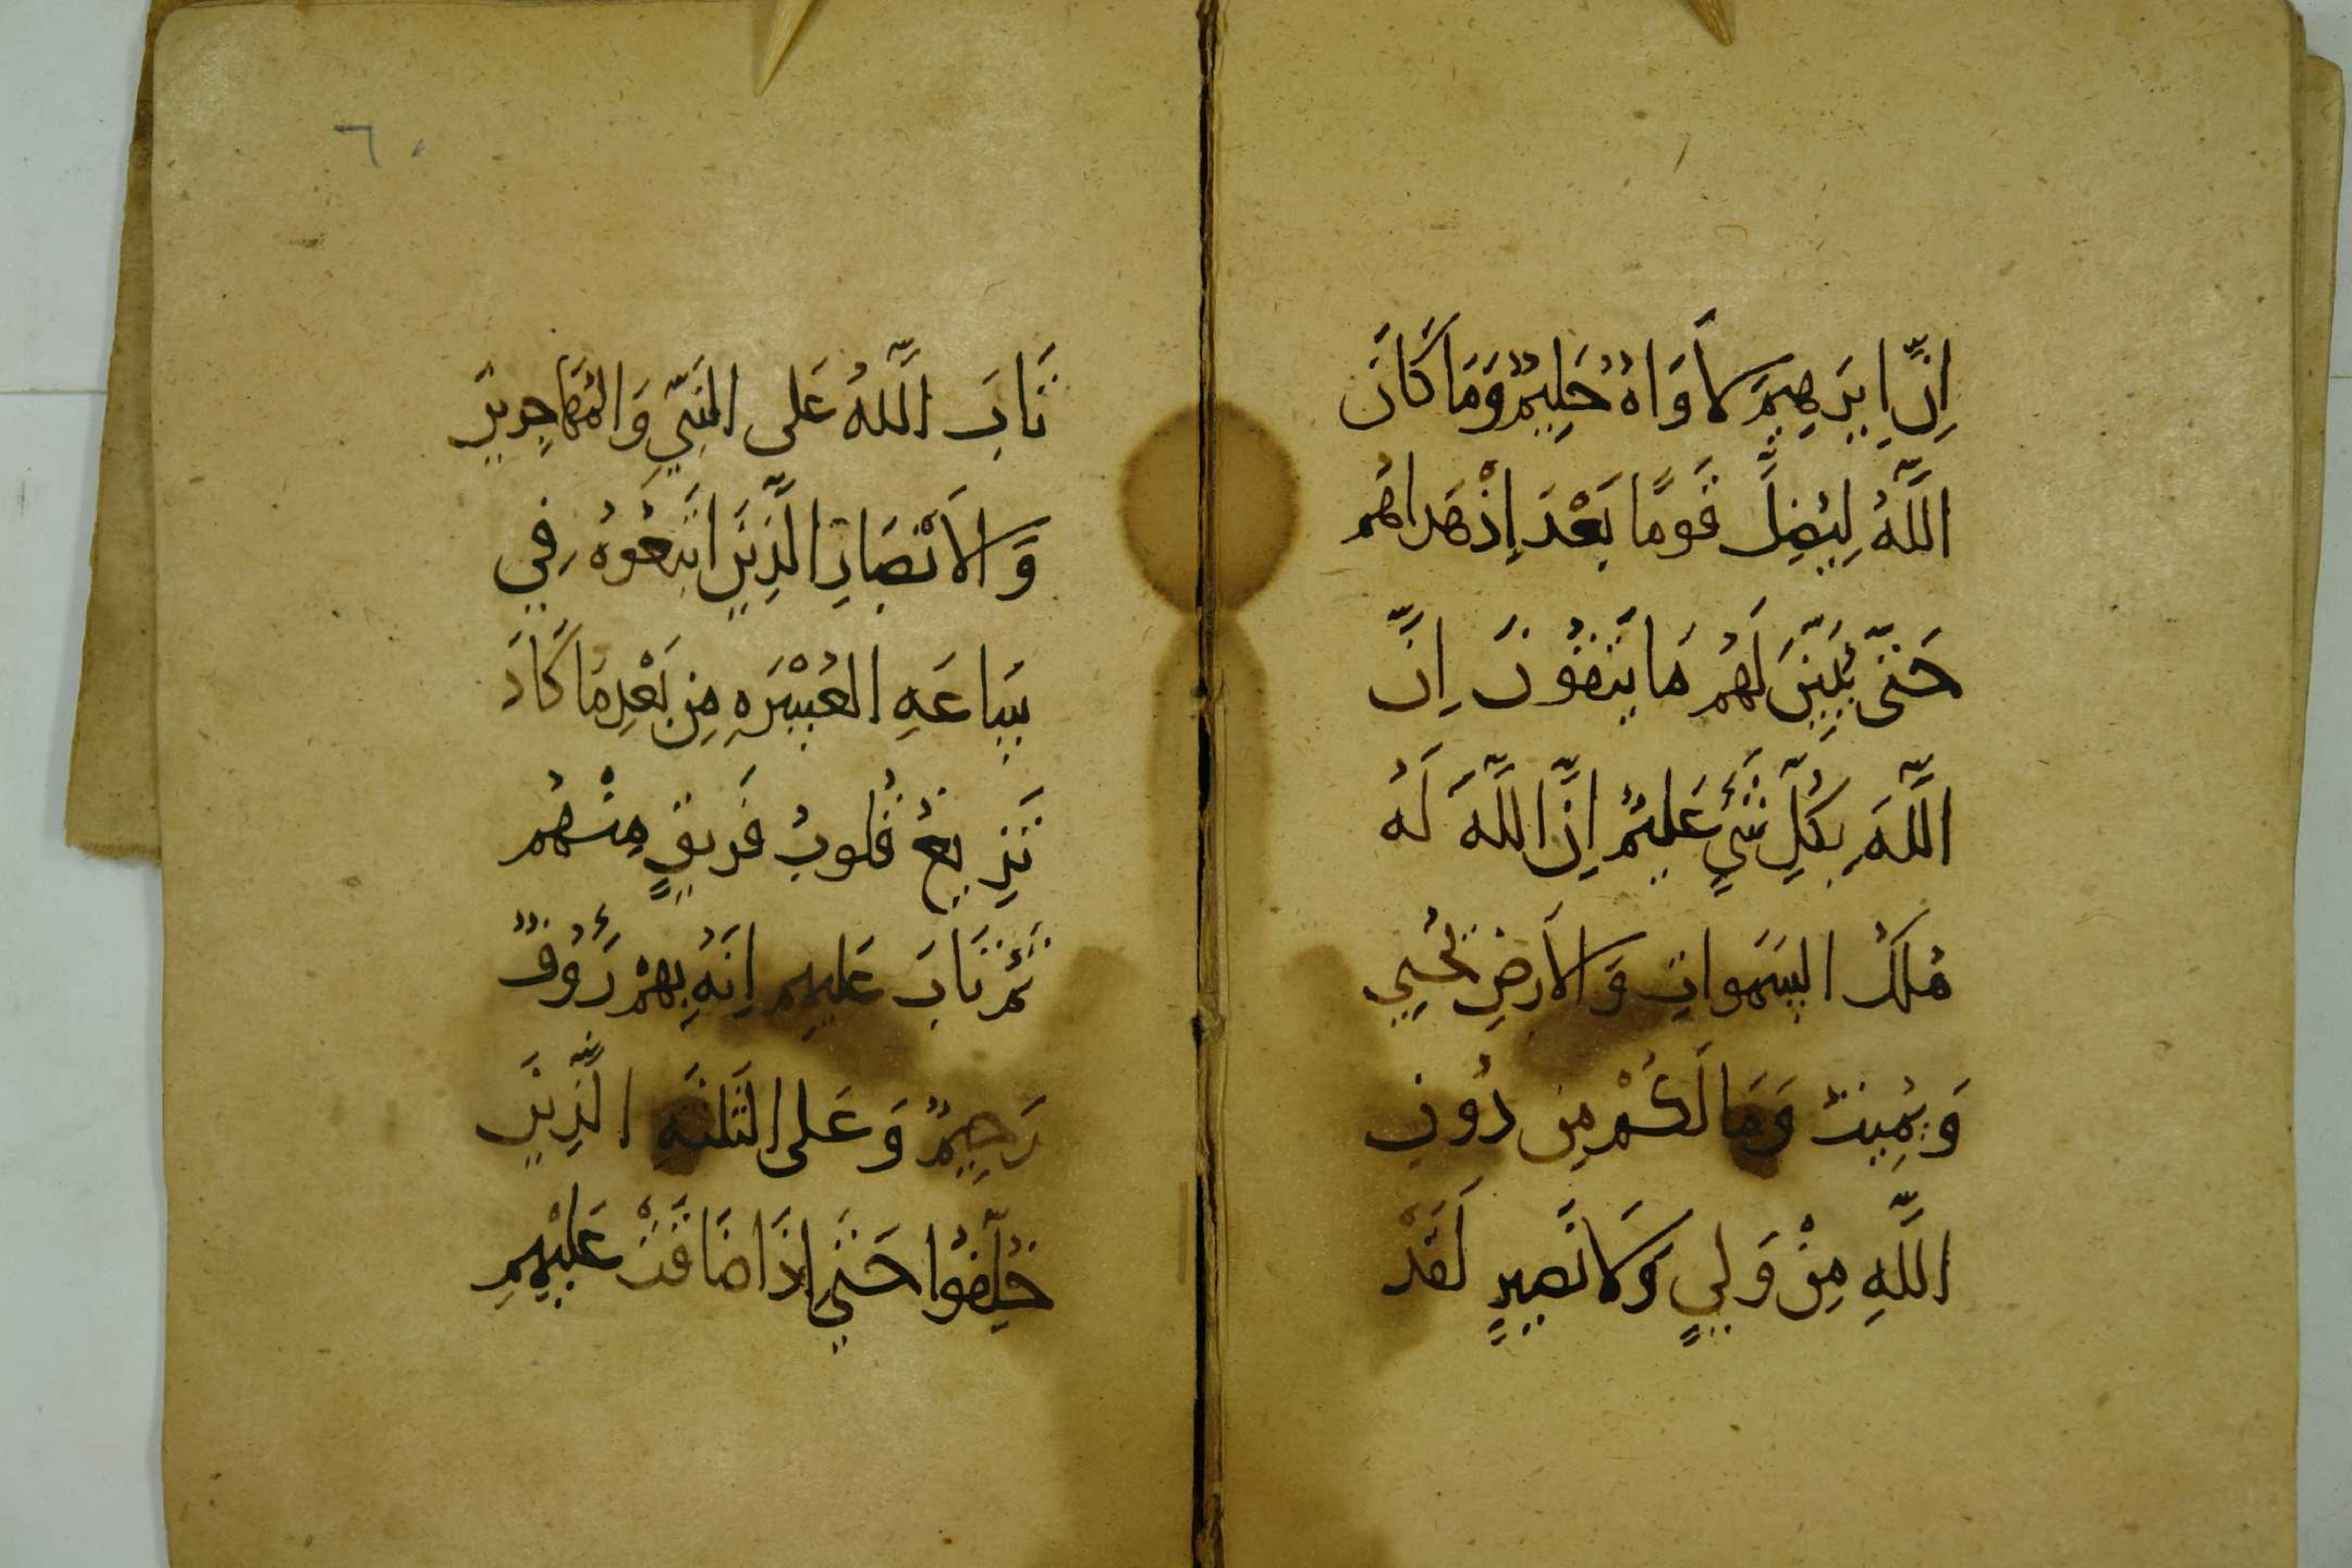 اِنَّ اِبرَهِيمَ لَأَوَاهٌ حَلِيمٌ وَمَا كَانَ
اللَّهُ لِيُضِلَّ قَومًا بَعْدَ إِذْ هَدَاهُم
حَتّى يُبَيِّنَ لَهُم مَا يَتَقُونَ اِنَّ
اللَّهَ بِكُلِّ شَيءٍ عَلِيمٌ اِنَّ اللَّهَ لَهُ
مُلكُ السَمَواتِ وَالأَرضِ يُحيِي
وَيُمِيتُ وَمَا لَكُمْ مِن دُونِ
اللَّهِ مِنْ وَلِيٍ وَلَا نَصِيرٍ لَقَدْ
٦٠
تَابَ اللَّهُ عَلى النَبِيِّ وَالمُهَاجِرِينَ
وَالأَنْصَارِ الَّذِينَ اتَبَعُوهُ فِي
سَاعَهِ العُسْرَهِ مِن بَعْدِ مَا كَادَ
تَزِيغُ قُلوبُ فَرِيقٍ مِنْهُم
ثُمَ تَابَ عَلَيهِم اِنَهُ بِهِمْ رَؤُوفٌ
رَحِيمٌ وَعَلى الثَلثَهِ الَّذِينَ
خُلِّفُوا حَتَي إِذَا ضَاقَتْ عَلَيْهِمِ